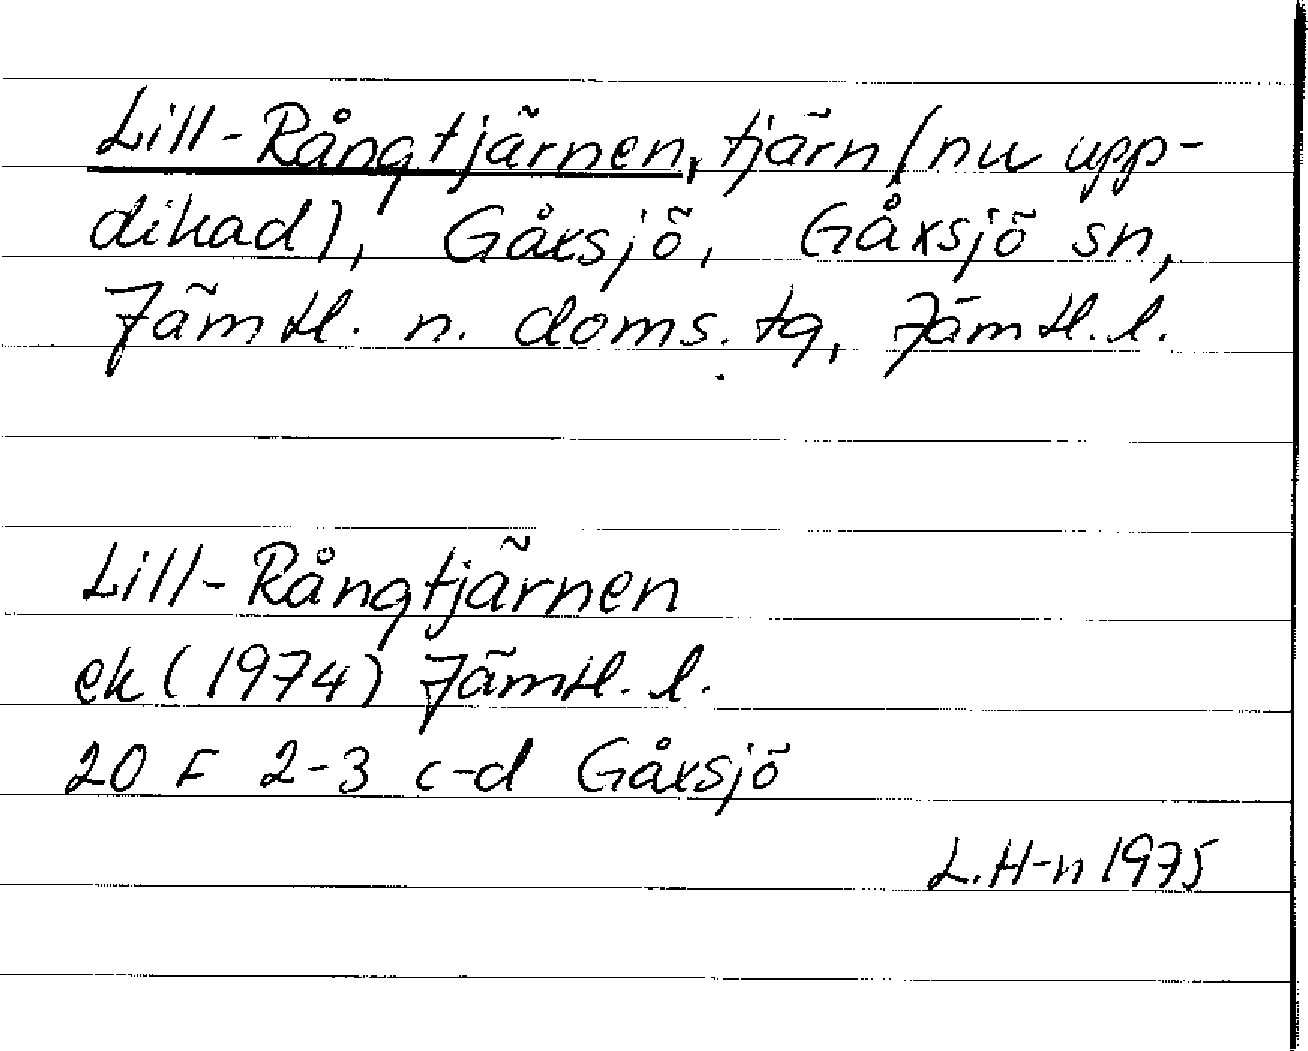 Lill-Rångtjärnen, tjärn (nu upp-
dikad), Gåxsjö, Gåxsjö sn,
Jämtl. n. doms. tg, Jämtl. l.
Lill-Rångtjärnen
ek (1974) Jämtl. l.
20 F 2-3 c-d Gåxsjö
L. H-n 1975